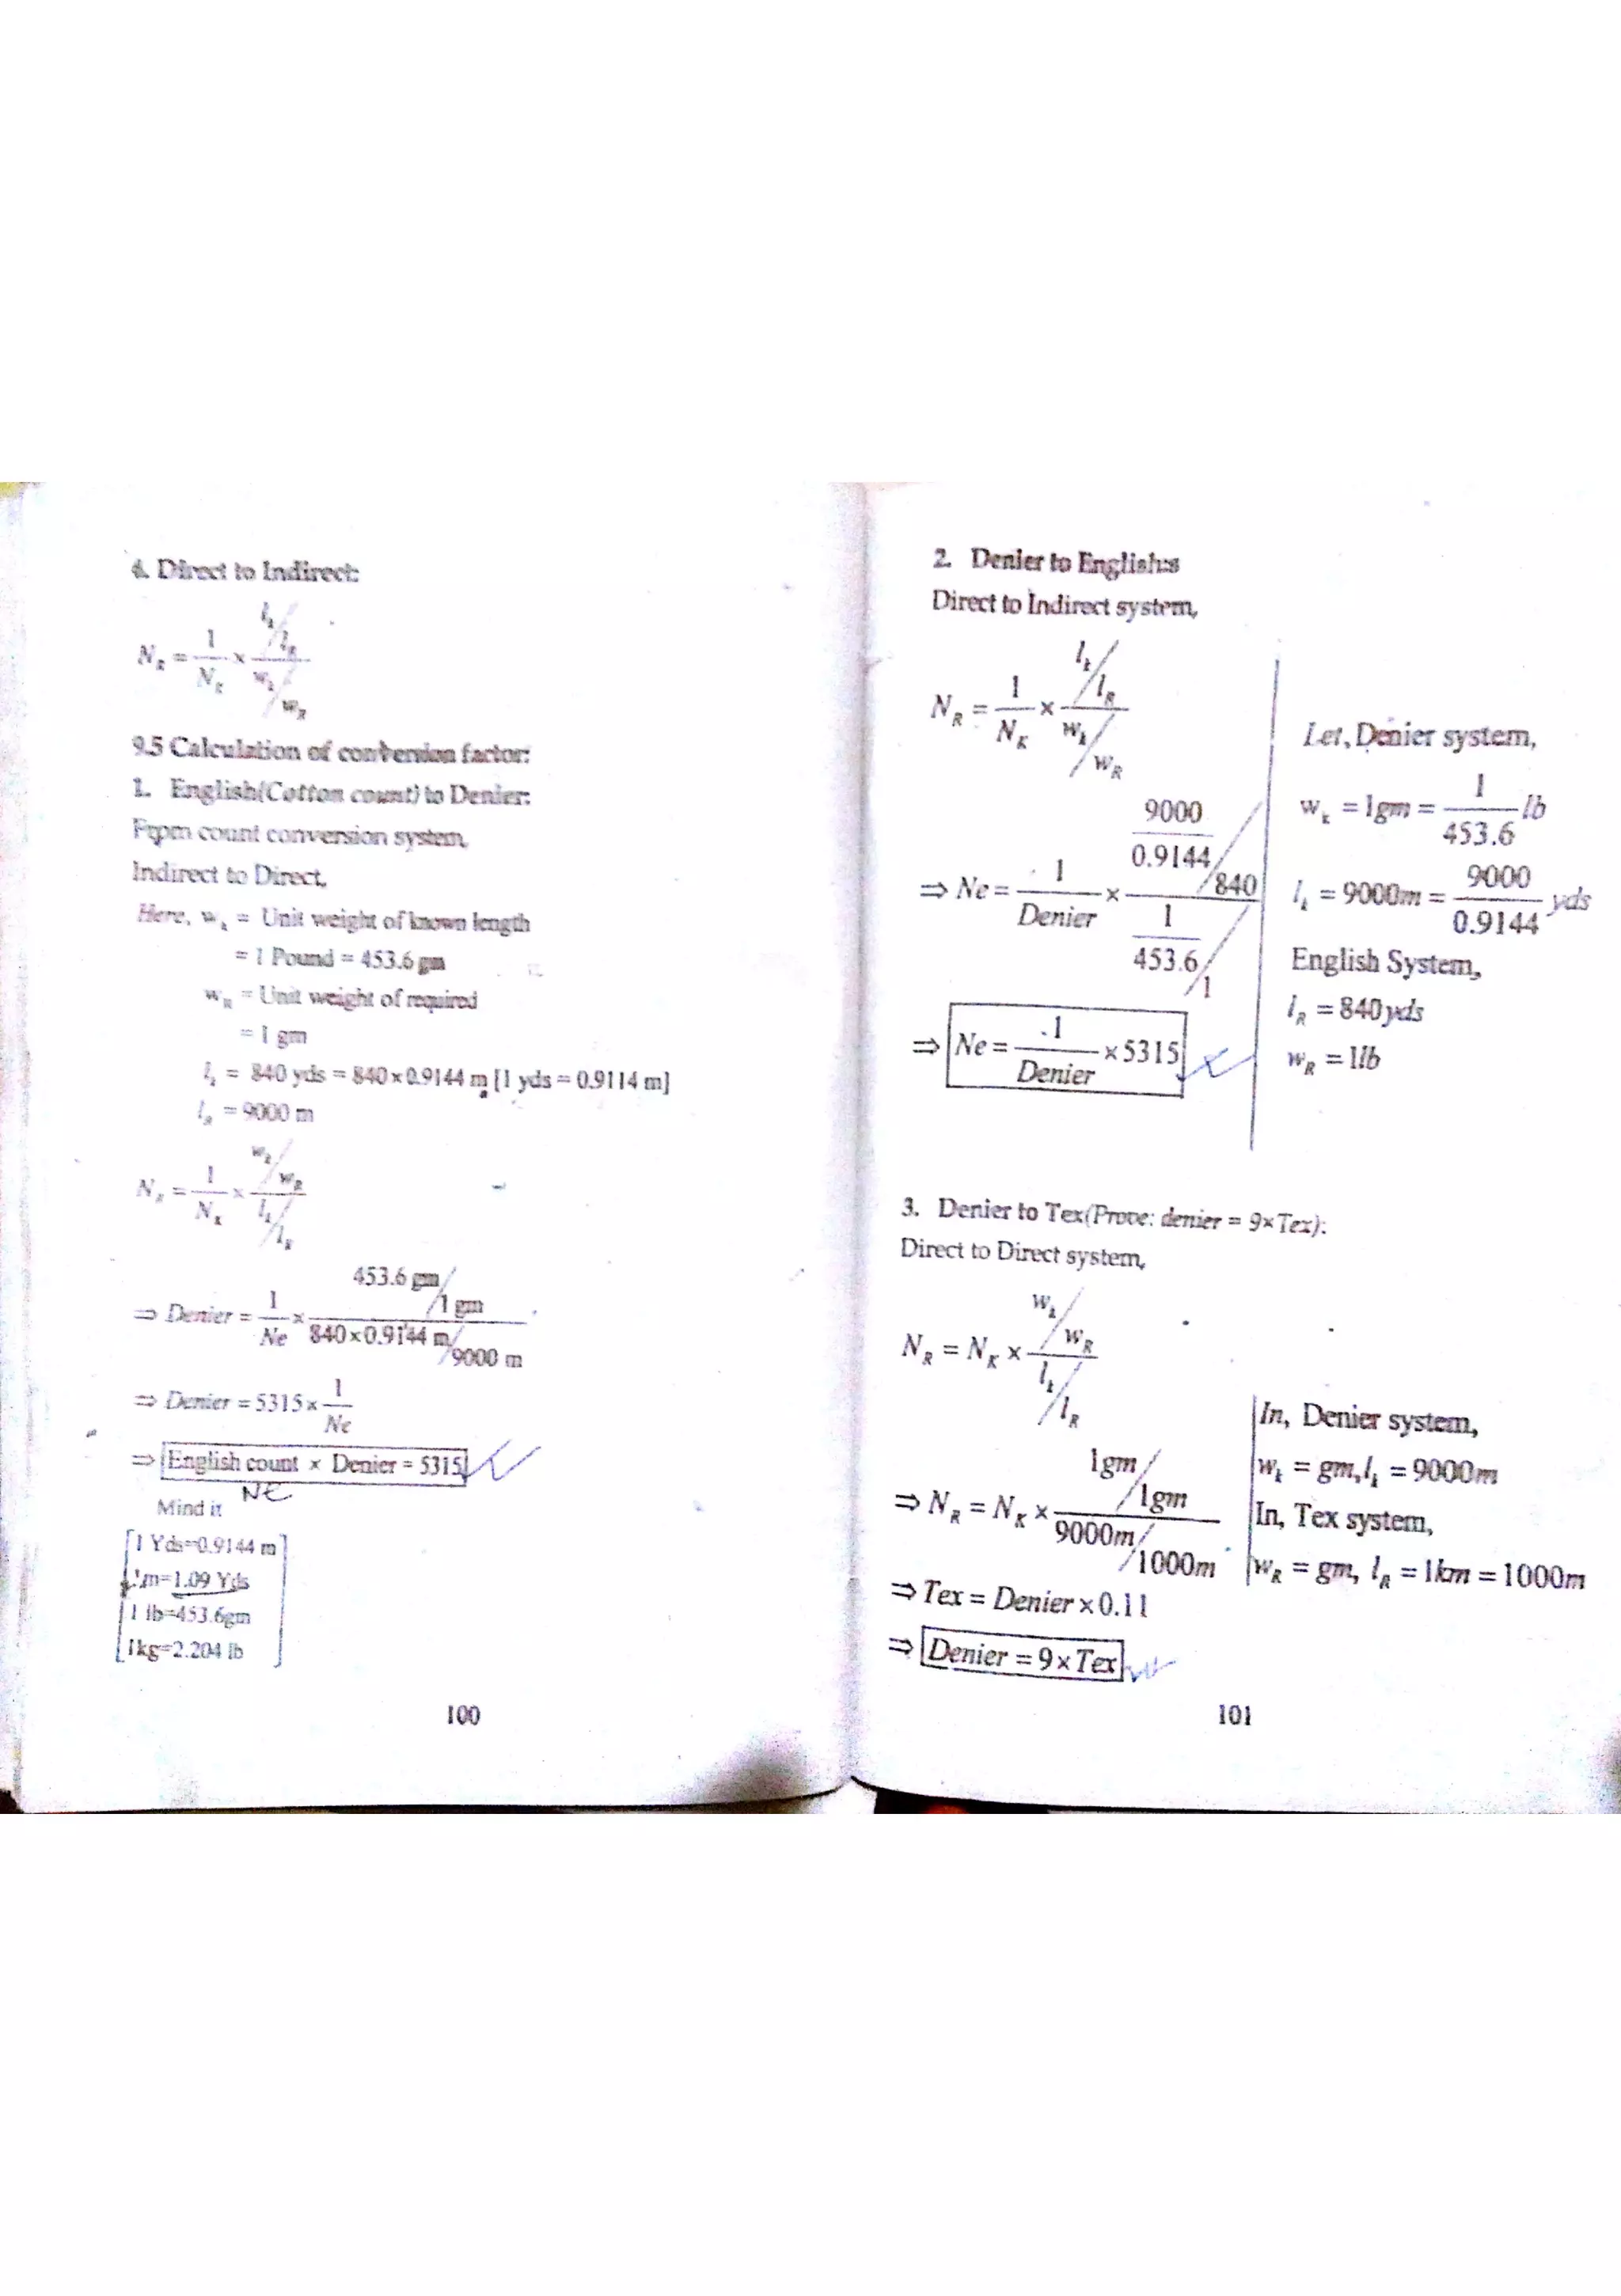 4. Direct to Indirect:
N_R = 1/N_K × (l_k/l_R)/(w_k/w_R)
9.5 Calculation of conversion factor:
1. English(Cotton count) to Denier:
From count conversion system,
Indirect to Direct,
Here, w_k = Unit weight of known length
= 1 Pound = 453.6 gm
w_R = Unit weight of required
= 1 gm
l_k = 840 yds = 840×0.9144 m [1 yds = 0.9114 m]
l_R = 9000 m
N_R = 1/N_K × (w_k/w_R)/(l_k/l_R)
⇒ Denier = 1/Ne × (453.6 gm/1 gm)/(840×0.9144 m/9000 m)
⇒ Denier = 5315 × 1/Ne
⇒ English count × Denier = 5315
NE
Mind it
1 Yds=0.9144 m
1m=1.09 Yds
1 lb=453.6gm
1kg=2.204 lb
100
2. Denier to English:
Direct to Indirect system,
N_R = 1/N_K × (l_k/l_R)/(w_k/w_R)
⇒ Ne = 1/Denier × (9000/0.9144/840)/(1/453.6/1)
⇒ Ne = 1/Denier × 5315
Let, Denier system,
w_k = 1gm = 1/453.6 lb
l_k = 9000m = 9000/0.9144 yds
English System,
l_R = 840yds
w_R = 1lb
3. Denier to Tex(Prove: denier = 9×Tex):
Direct to Direct system,
N_R = N_K × (w_k/w_R)/(l_k/l_R)
⇒ N_R = N_K × (1gm/1gm)/(9000m/1000m)
⇒ Tex = Denier × 0.11
⇒ Denier = 9×Tex
In, Denier system,
w_k = gm, l_k = 9000m
In, Tex system,
w_R = gm, l_R = 1km = 1000m
101